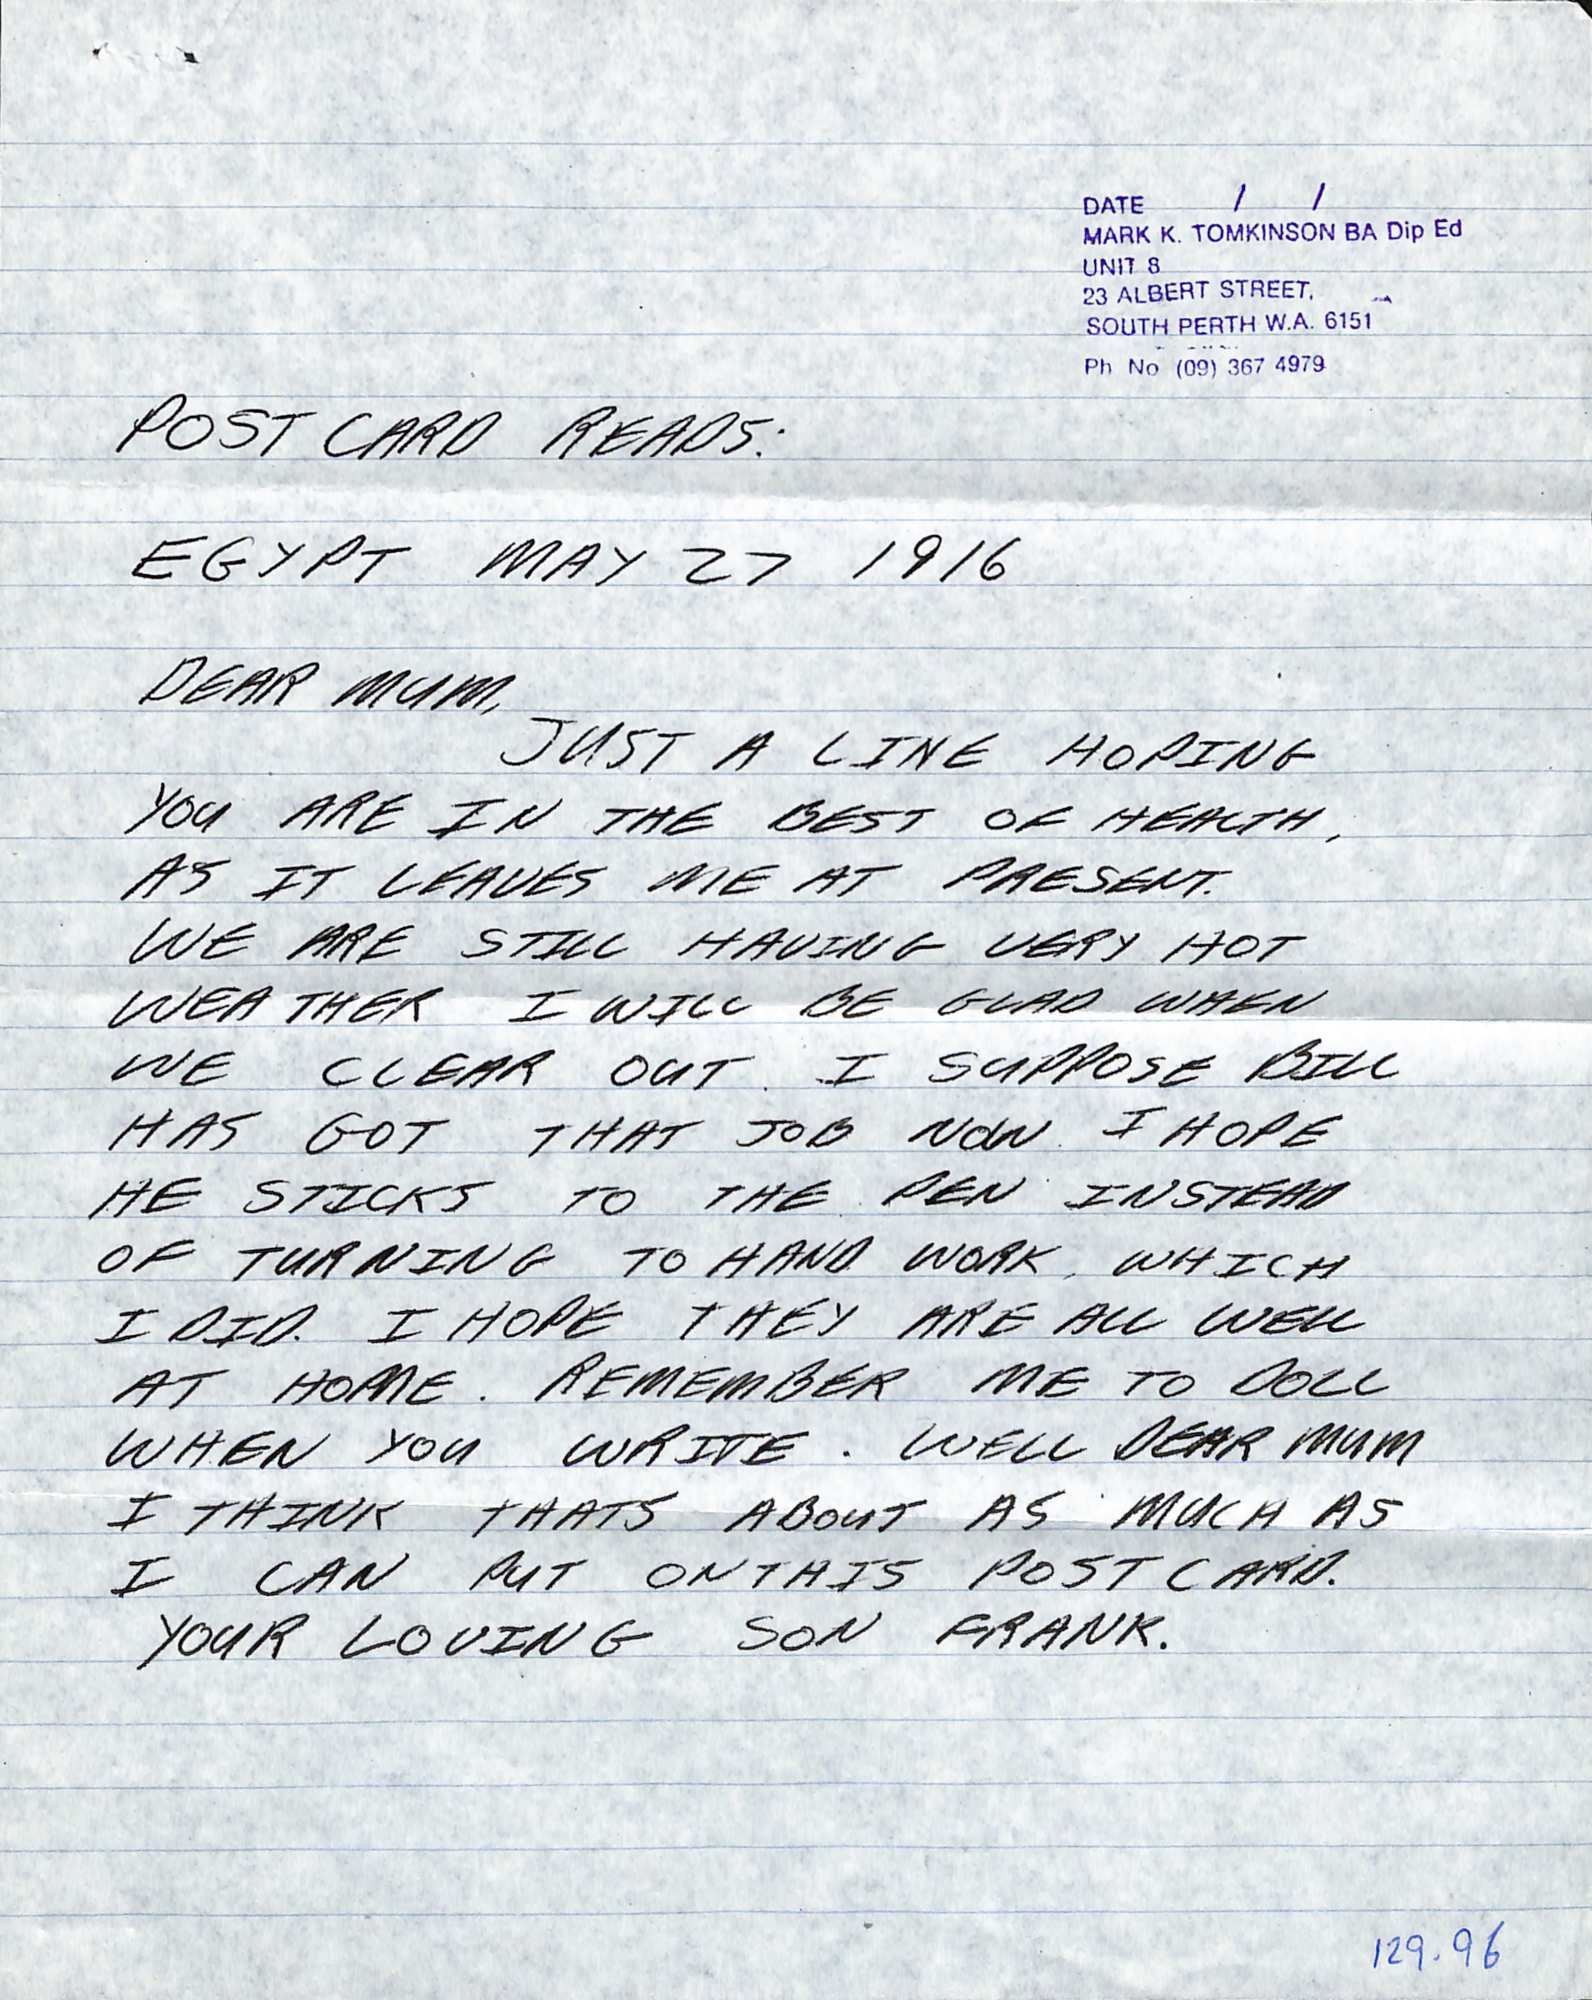 DATE / /
MARK K. TOMKINSON BA Dip Ed
UNIT 8
23 ALBERT STREET,
SOUTH PERTH W.A. 6151
Ph No (09) 367 4979
POST CARD READS:
EGYPT MAY 27 1916
DEAR MUM,
JUST A LINE HOPING
YOU ARE IN THE BEST OF HEALTH,
AS IT LEAVES ME AT PRESENT.
WE ARE STILL HAVING VERY HOT
WEATHER I WILL BE GLAD WHEN
WE CLEAR OUT. I SUPPOSE BILL
HAS GOT THAT JOB NOW. I HOPE
HE STICKS TO THE PEN INSTEAD
OF TURNING TO HAND WORK, WHICH
I DID. I HOPE THEY ARE ALL WELL
AT HOME. REMEMBER ME TO DOLL
WHEN YOU WRITE. WELL DEAR MUM
I THINK THATS ABOUT AS MUCH AS
I CAN PUT ON THIS POST CARD.
YOUR LOVING SON FRANK.
129.96